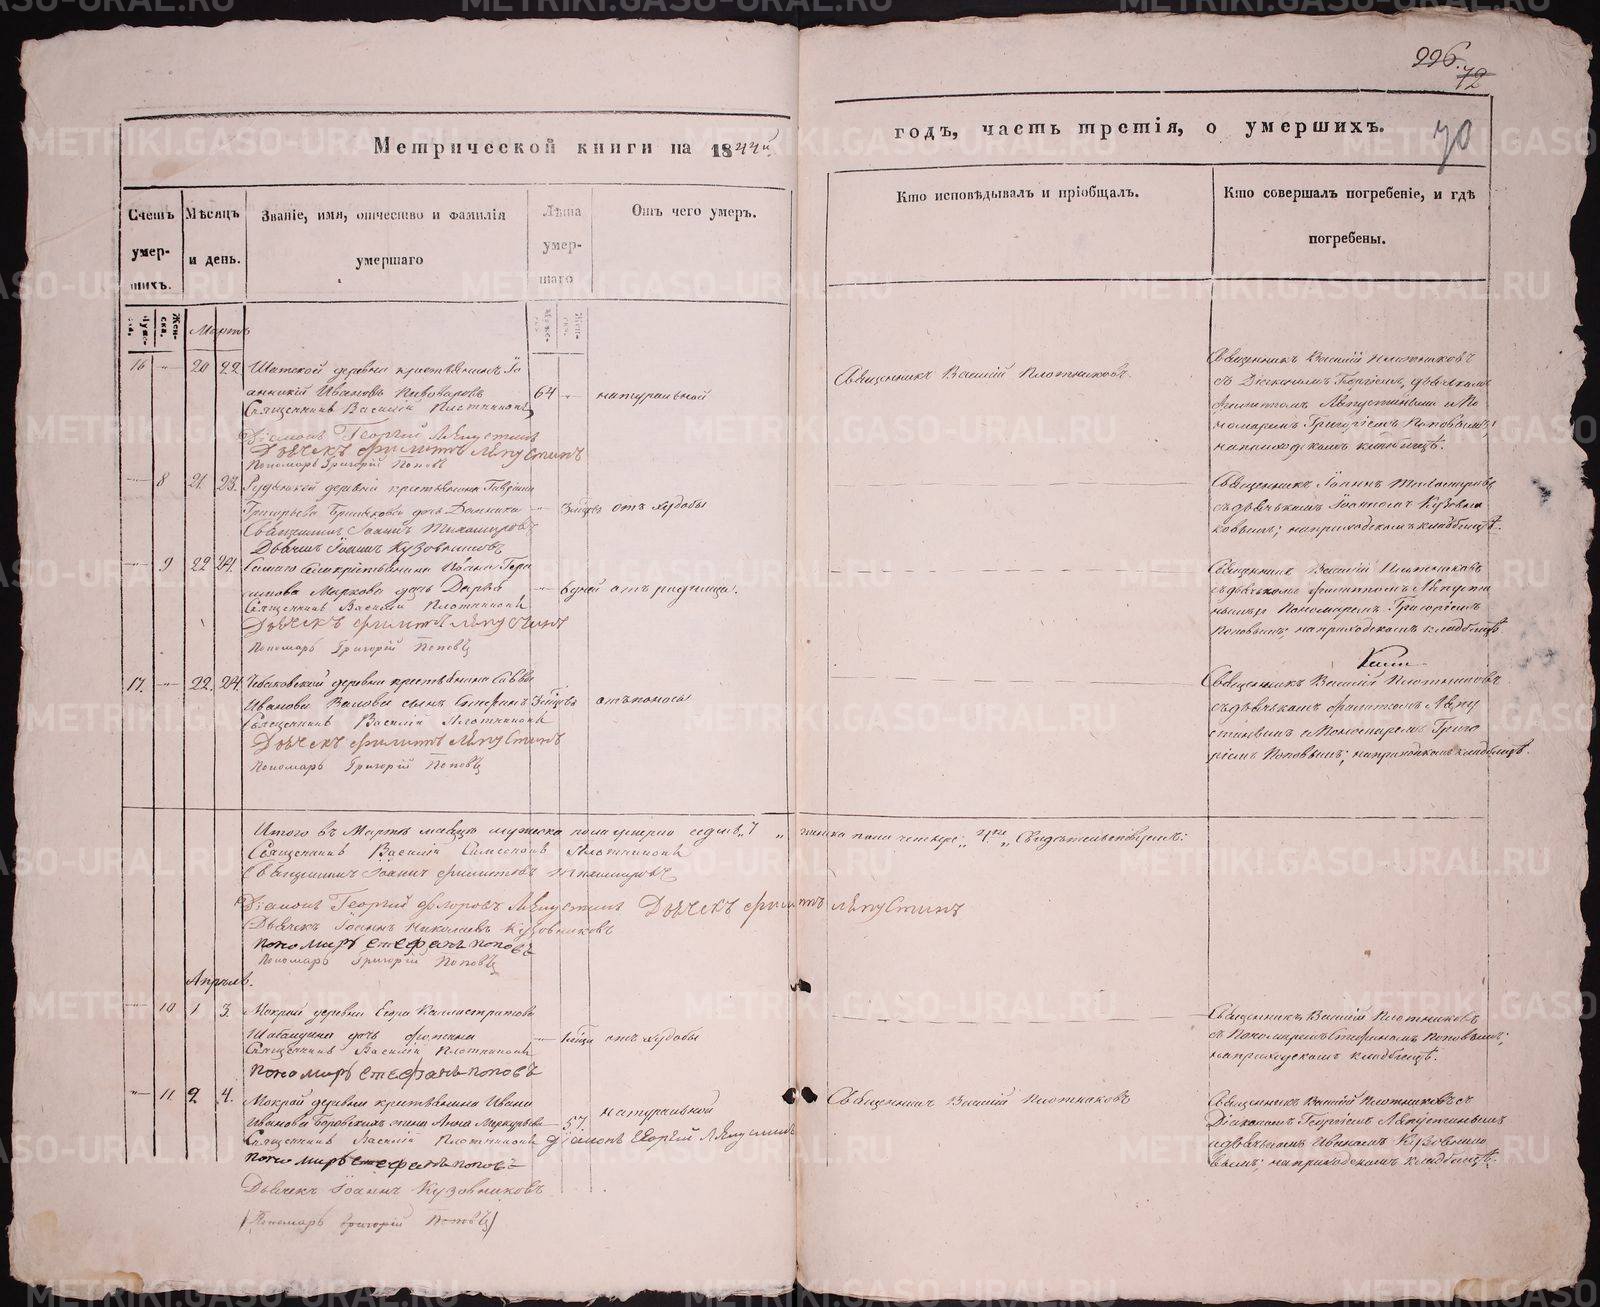 226.
72
70
Метрической книги на 1844й
годъ, часть третія, о умершихъ.
Счетъ умершихъ.
Мѣсяцъ и день.
Званіе, имя, отчество и фамилія умершаго
Лѣта умершаго
Отъ чего умеръ.
Кто исповѣдывалъ и пріобщалъ.
Кто совершалъ погребеніе, и гдѣ погребены.
Мартъ
16 20 22 деревни крестьянинъ
Ивановъ Пивоваровъ 64 натуральной
Священникъ Василій Плотниковъ
Діаконъ Георгій Ляпустинъ
Дьячекъ Филиппъ Ляпустинъ
Пономарь Григорій Поповъ
Священникъ Василій Плотниковъ.
Священникъ Василій Плотниковъ
съ Діакономъ Георгіемъ, дьячкомъ
Филиппомъ Ляпустинымъ и По
номаремъ Григоріемъ Поповымъ;
на приходскомъ кладбищѣ.
8 21. 23. деревни крестьянина
Григорьева дочь
Священникъ Іоаннъ Тихомировъ
Дьячекъ Іоаннъ Кузовниковъ
отъ худобы
Священникъ Іоаннъ Тихомировъ
съ дьячкомъ Іоанномъ Кузовни
ковымъ; на приходскомъ кладбищѣ.
9 22 24. крестьянина Ивана
Маркова дочь Дарья дней отъ родимца.
Священникъ Василій Плотниковъ
Дьячекъ Филиппъ Ляпустинъ
Пономарь Григорій Поповъ
Священникъ Василій Плотниковъ
съ дьячкомъ Филиппомъ Ляпусти
нымъ и Пономаремъ Григоріемъ
Поповымъ; на приходскомъ кладбищѣ
17. 22. 24. деревни крестьянина Саввы
Иванова сынъ Стефанъ отъ поноса
Священникъ Василій Плотниковъ
Дьячекъ Филиппъ Ляпустинъ
Пономарь Григорій Поповъ
Священникъ Василій Плотниковъ
съ дьячкомъ Филиппомъ Ляпу
стинымъ и Пономаремъ Григо
ріемъ Поповымъ; на приходскомъ кладбищѣ.
Итого въ Мартѣ мѣсяцѣ мужеска пола умерло седмь „7„ женска пола четыре „4„ Свидѣтельствуемъ:
Священникъ Василій Симеоновъ Плотниковъ
Священникъ Іоаннъ Филипповъ Тихомировъ
Діаконъ Георгій Ѳедоровъ Ляпустинъ Дьячекъ Филиппъ Ляпустинъ
Дьячекъ Іоаннъ Николаевъ Кузовниковъ
Пономарь Стефанъ Поповъ
Пономарь Григорій Поповъ
Апрѣль.
10 1 3. Мокрой деревни Егора Калистратова
дочь отъ худобы
Священникъ Василій Плотниковъ
Пономарь Стефанъ Поповъ
Священникъ Василій Плотниковъ
съ Пономаремъ Стефаномъ Поповымъ;
на приходскомъ кладбищѣ.
11 2. 4. Мокрой деревни крестьянина Ивана
Иванова жена Анна 57. натуральной
Священникъ Василій Плотниковъ Діаконъ Георгій Ляпустинъ
Пономарь Стефанъ Поповъ
Дьячекъ Іоаннъ Кузовниковъ
(Пономарь Григорій Поповъ)
Священникъ Василій Плотниковъ
Священникъ Василій Плотниковъ съ
Діакономъ Георгіемъ Ляпустинымъ
и дьячкомъ Иваномъ Кузовнико
вымъ; на приходскомъ кладбищѣ.
METRIKI.GASO-URAL.RU